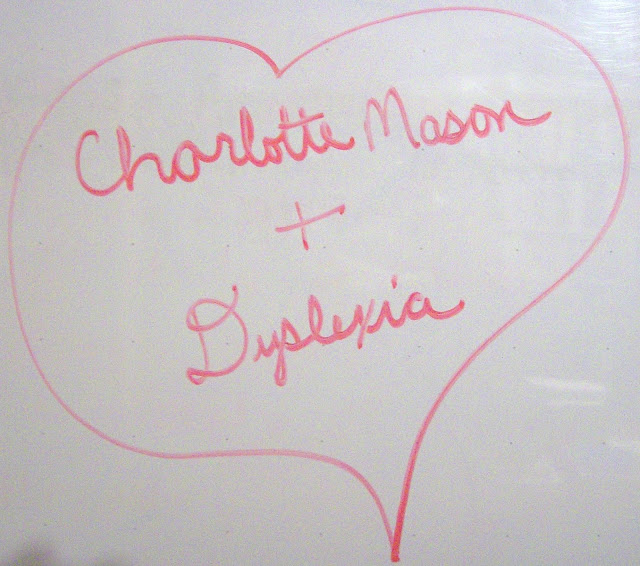 Charlotte Mason
+
Dyslexia